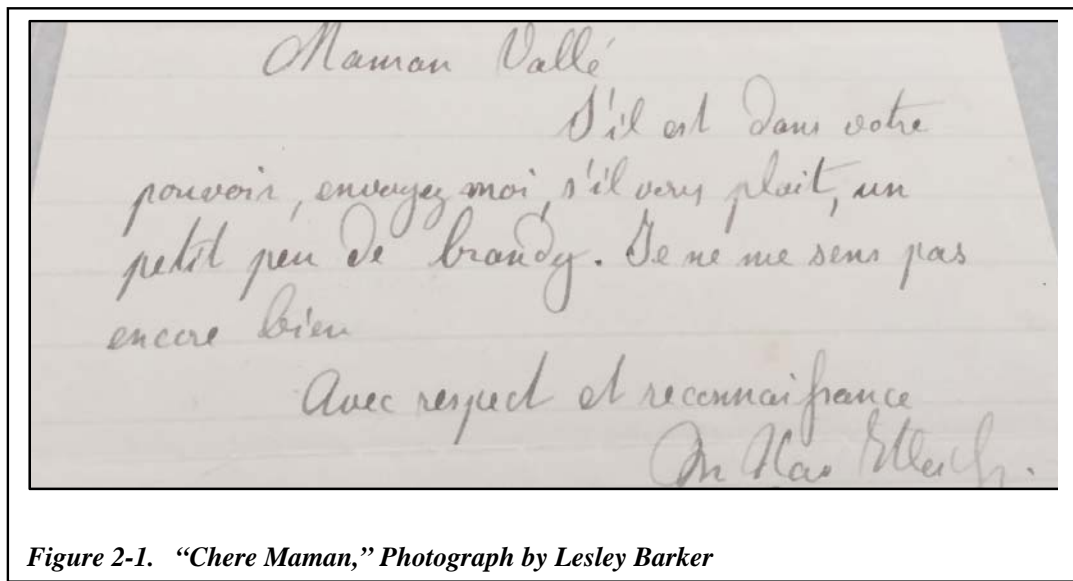 Maman Vallé
S'il est dans votre
pouvoir, envoyez moi, s'il vous plait, un
petit peu de brandy. Je ne me sens pas
encore bien
Avec respect et reconnaissance
Figure 2-1. “Chere Maman,” Photograph by Lesley Barker